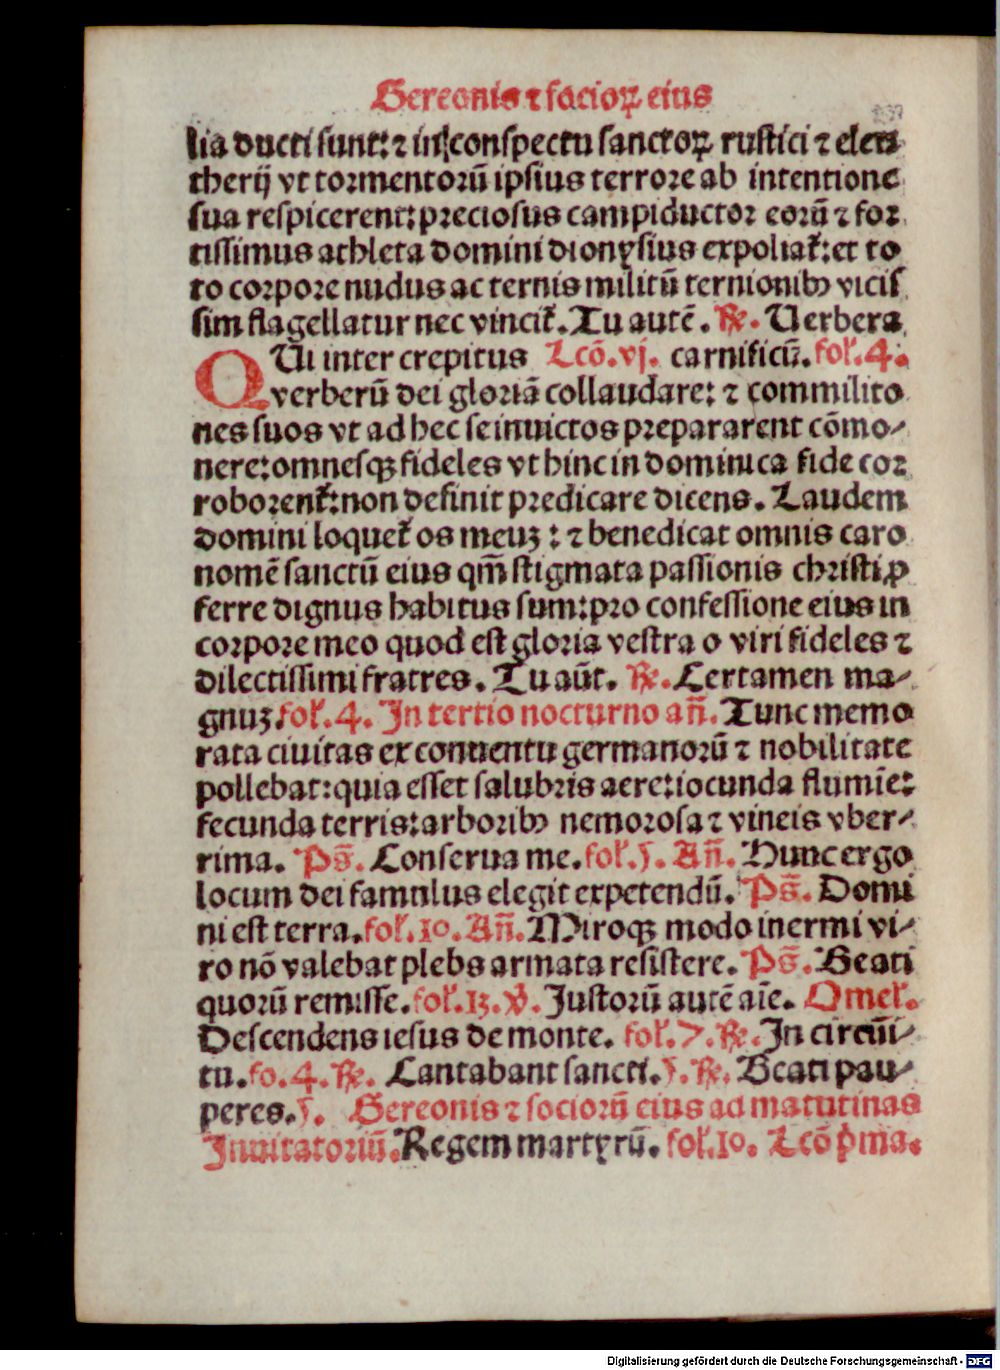 Gereonis ⁊ socioꝝ eius
lia ducti sunt: ⁊ in conspectu sanctoꝝ rustici ⁊ eleu
therij vt tormentorū ipsius terrore ab intentione
sua respicerent: preciosus campiductor eorū ⁊ for
tissimus athleta domini dionysius expoliat᷑: et to
to corpore nudus ac ternis militū ternionibꝰ vicis
sim flagellatur nec vincit᷑. Tu autē. ℟. Uerbera
QUi inter crepitus Lcō. vj. carnificū. fol᷑. 4.
verberū dei gloriā collaudare: ⁊ commilito
nes suos vt ad hec se inuictos prepararent cōmo⸗
nere: omnesqꝫ fideles vt hinc in dominica fide cor
roborent᷑: non definit predicare dicens. Laudem
domini loquet᷑ os meuꝫ: ⁊ benedicat omnis caro
nomē sanctū eius qm̄ stigmata passionis christi ꝑ
ferre dignus habitus sum: pro confessione eius in
corpore meo quod est gloria vestra o viri fideles ⁊
dilectissimi fratres. Tu aūt. ℟. Certamen ma⸗
gnuꝫ. fol᷑. 4. In tertio nocturno an̄. Tunc memo
rata ciuitas ex conuentu germanorū ⁊ nobilitate
pollebat: quia esset salubris aere: iocunda flumīe:
fecunda terris: arboribꝰ nemorosa ⁊ vineis vber⸗
rima. Ps̄. Conserua me. fol᷑. 5. An̄. Hunc ergo
locum dei famulus elegit expetendū. Ps̄. Domi
ni est terra. fol᷑. 10. An̄. Miroqꝫ modo inermi vi⸗
ro nō valebat plebs armata resistere. Ps̄. Beati
quorū remisse. fol᷑. 13. ℣. Justorū autē aīe. Omel᷑.
Descendens iesus de monte. fol᷑. 7. ℟. In circūi⸗
tu. fo. 4. ℟. Cantabant sancti. 5. ℟. Beati pau⸗
peres. 5. Gereonis ⁊ sociorū eius ad matutinas
Inuitatoriū. Regem martyrū. fol᷑. 10. Lcō pͥma.
Digitalisierung gefördert durch die Deutsche Forschungsgemeinschaft - DFG